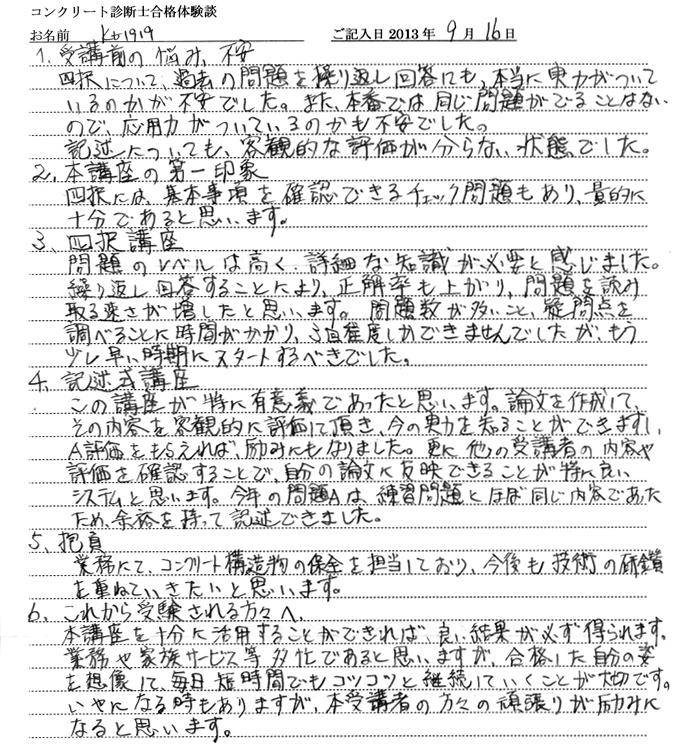 コンクリート診断士合格体験談
お名前 kt1919 ご記入日 2013 年 9 月 16 日
1. 受講前の悩み、不安
四択について、過去の問題を繰り返し回答にも、本当に実力がついて
いるのかが不安でした。また、本番では同じ問題がでることはない
ので、応用力がついているのかも不安でした。
記述についても、客観的な評価が分らない状態でした。
2. 本講座の第一印象
四択には、基本事項を確認できるチェック問題もあり、量的に
十分であると思います。
3. 四択講座
問題のレベルは高く、詳細な知識が必要と感じました。
繰り返し回答することにより、正解率も上がり、問題を読み
取る速さが増したと思います。問題数が多いこと、疑問点を
調べることに時間がかかり、3回程度しかできませんでしたが、もう
少し早い時期にスタートするべきでした。
4. 記述式講座
この講座が特に有意義であったと思います。論文を作成して、
その内容を客観的に評価して頂き、今の実力を知ることができますし、
A評価をもらえれば、励みにもなりました。更に他の受講者の内容や
評価を確認することで、自分の論文に反映できることが特に良い
システムと思います。今年の問題Aは、練習問題とほぼ同じ内容であった
ため、余裕を持って記述できました。
5. 抱負
業務にて、コンクリート構造物の保全を担当しており、今後も技術の研鑽
を重ねていきたいと思います。
6. これから受験される方々へ
本講座を十分に活用することができれば、良い結果が必ず得られます。
業務や家族サービス等多忙であると思いますが、合格した自分の姿
を想像して、毎日短時間でもコツコツと継続していくことが大切です。
いやになる時もありますが、本受講者の方々の頑張りが励みに
なると思います。